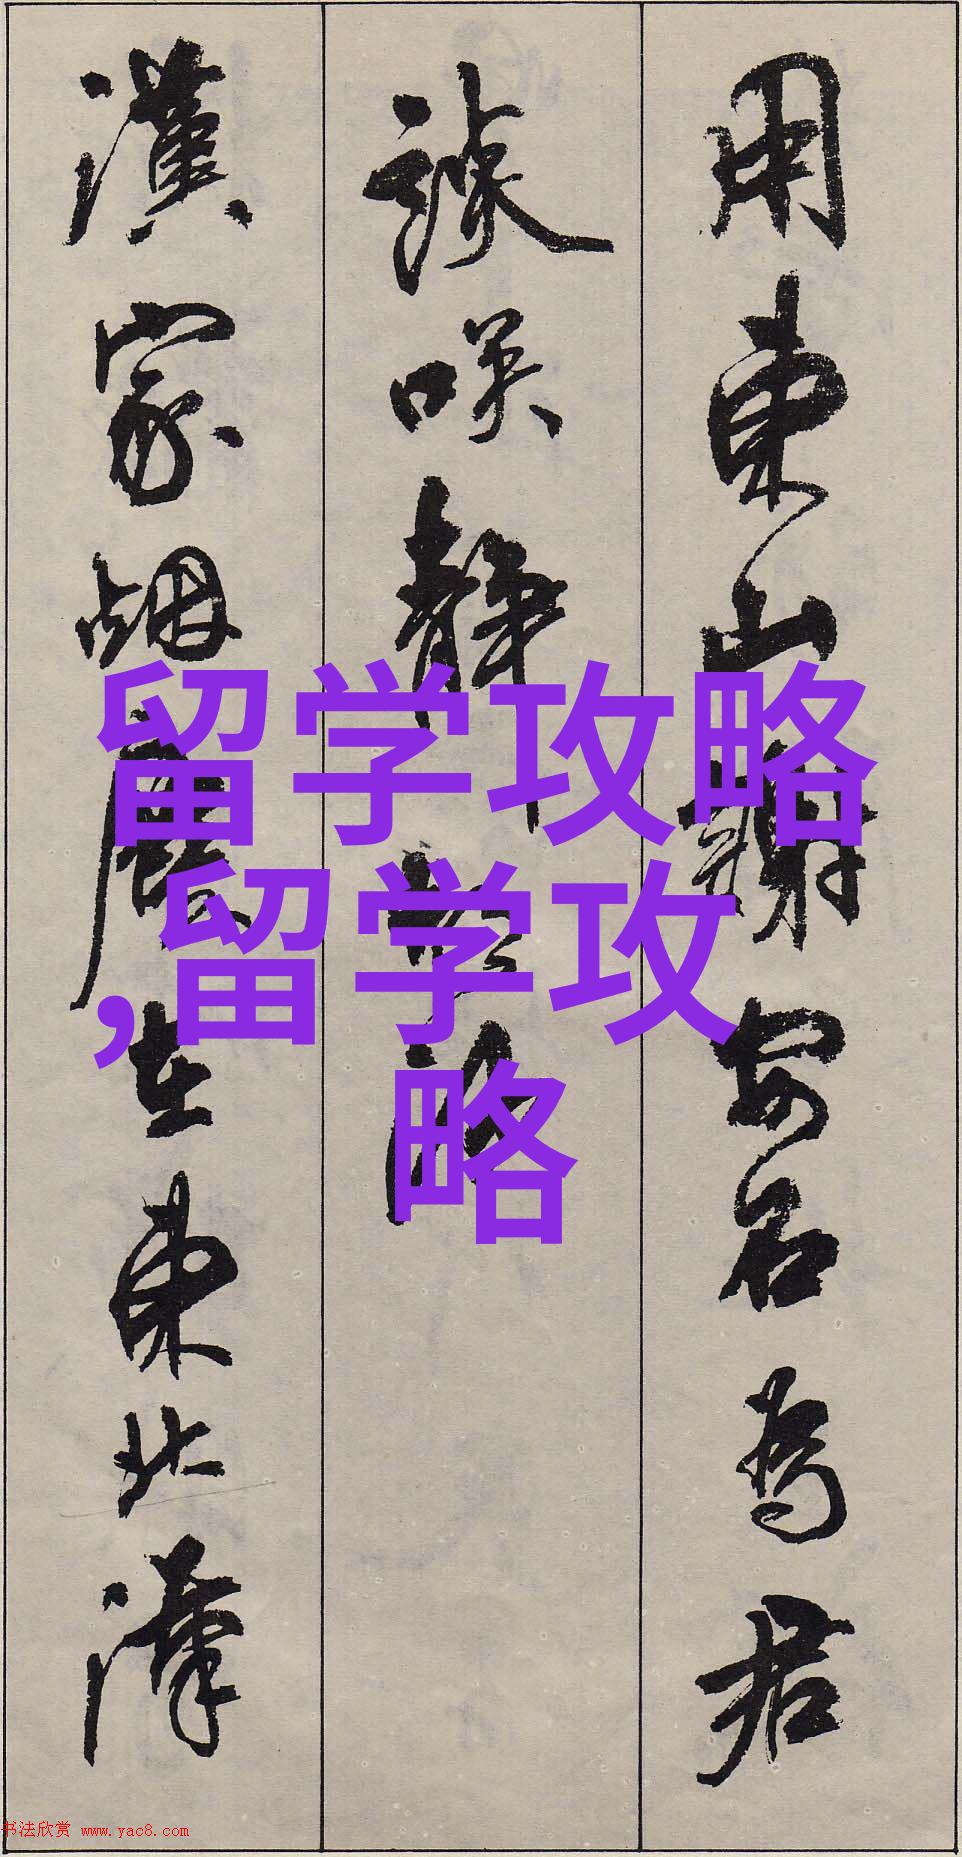 用東山謝安石為君
談咲静
漢家烟塵在東北漢
留学攻略
,留学攻
略
书法欣赏 www.yac8.com